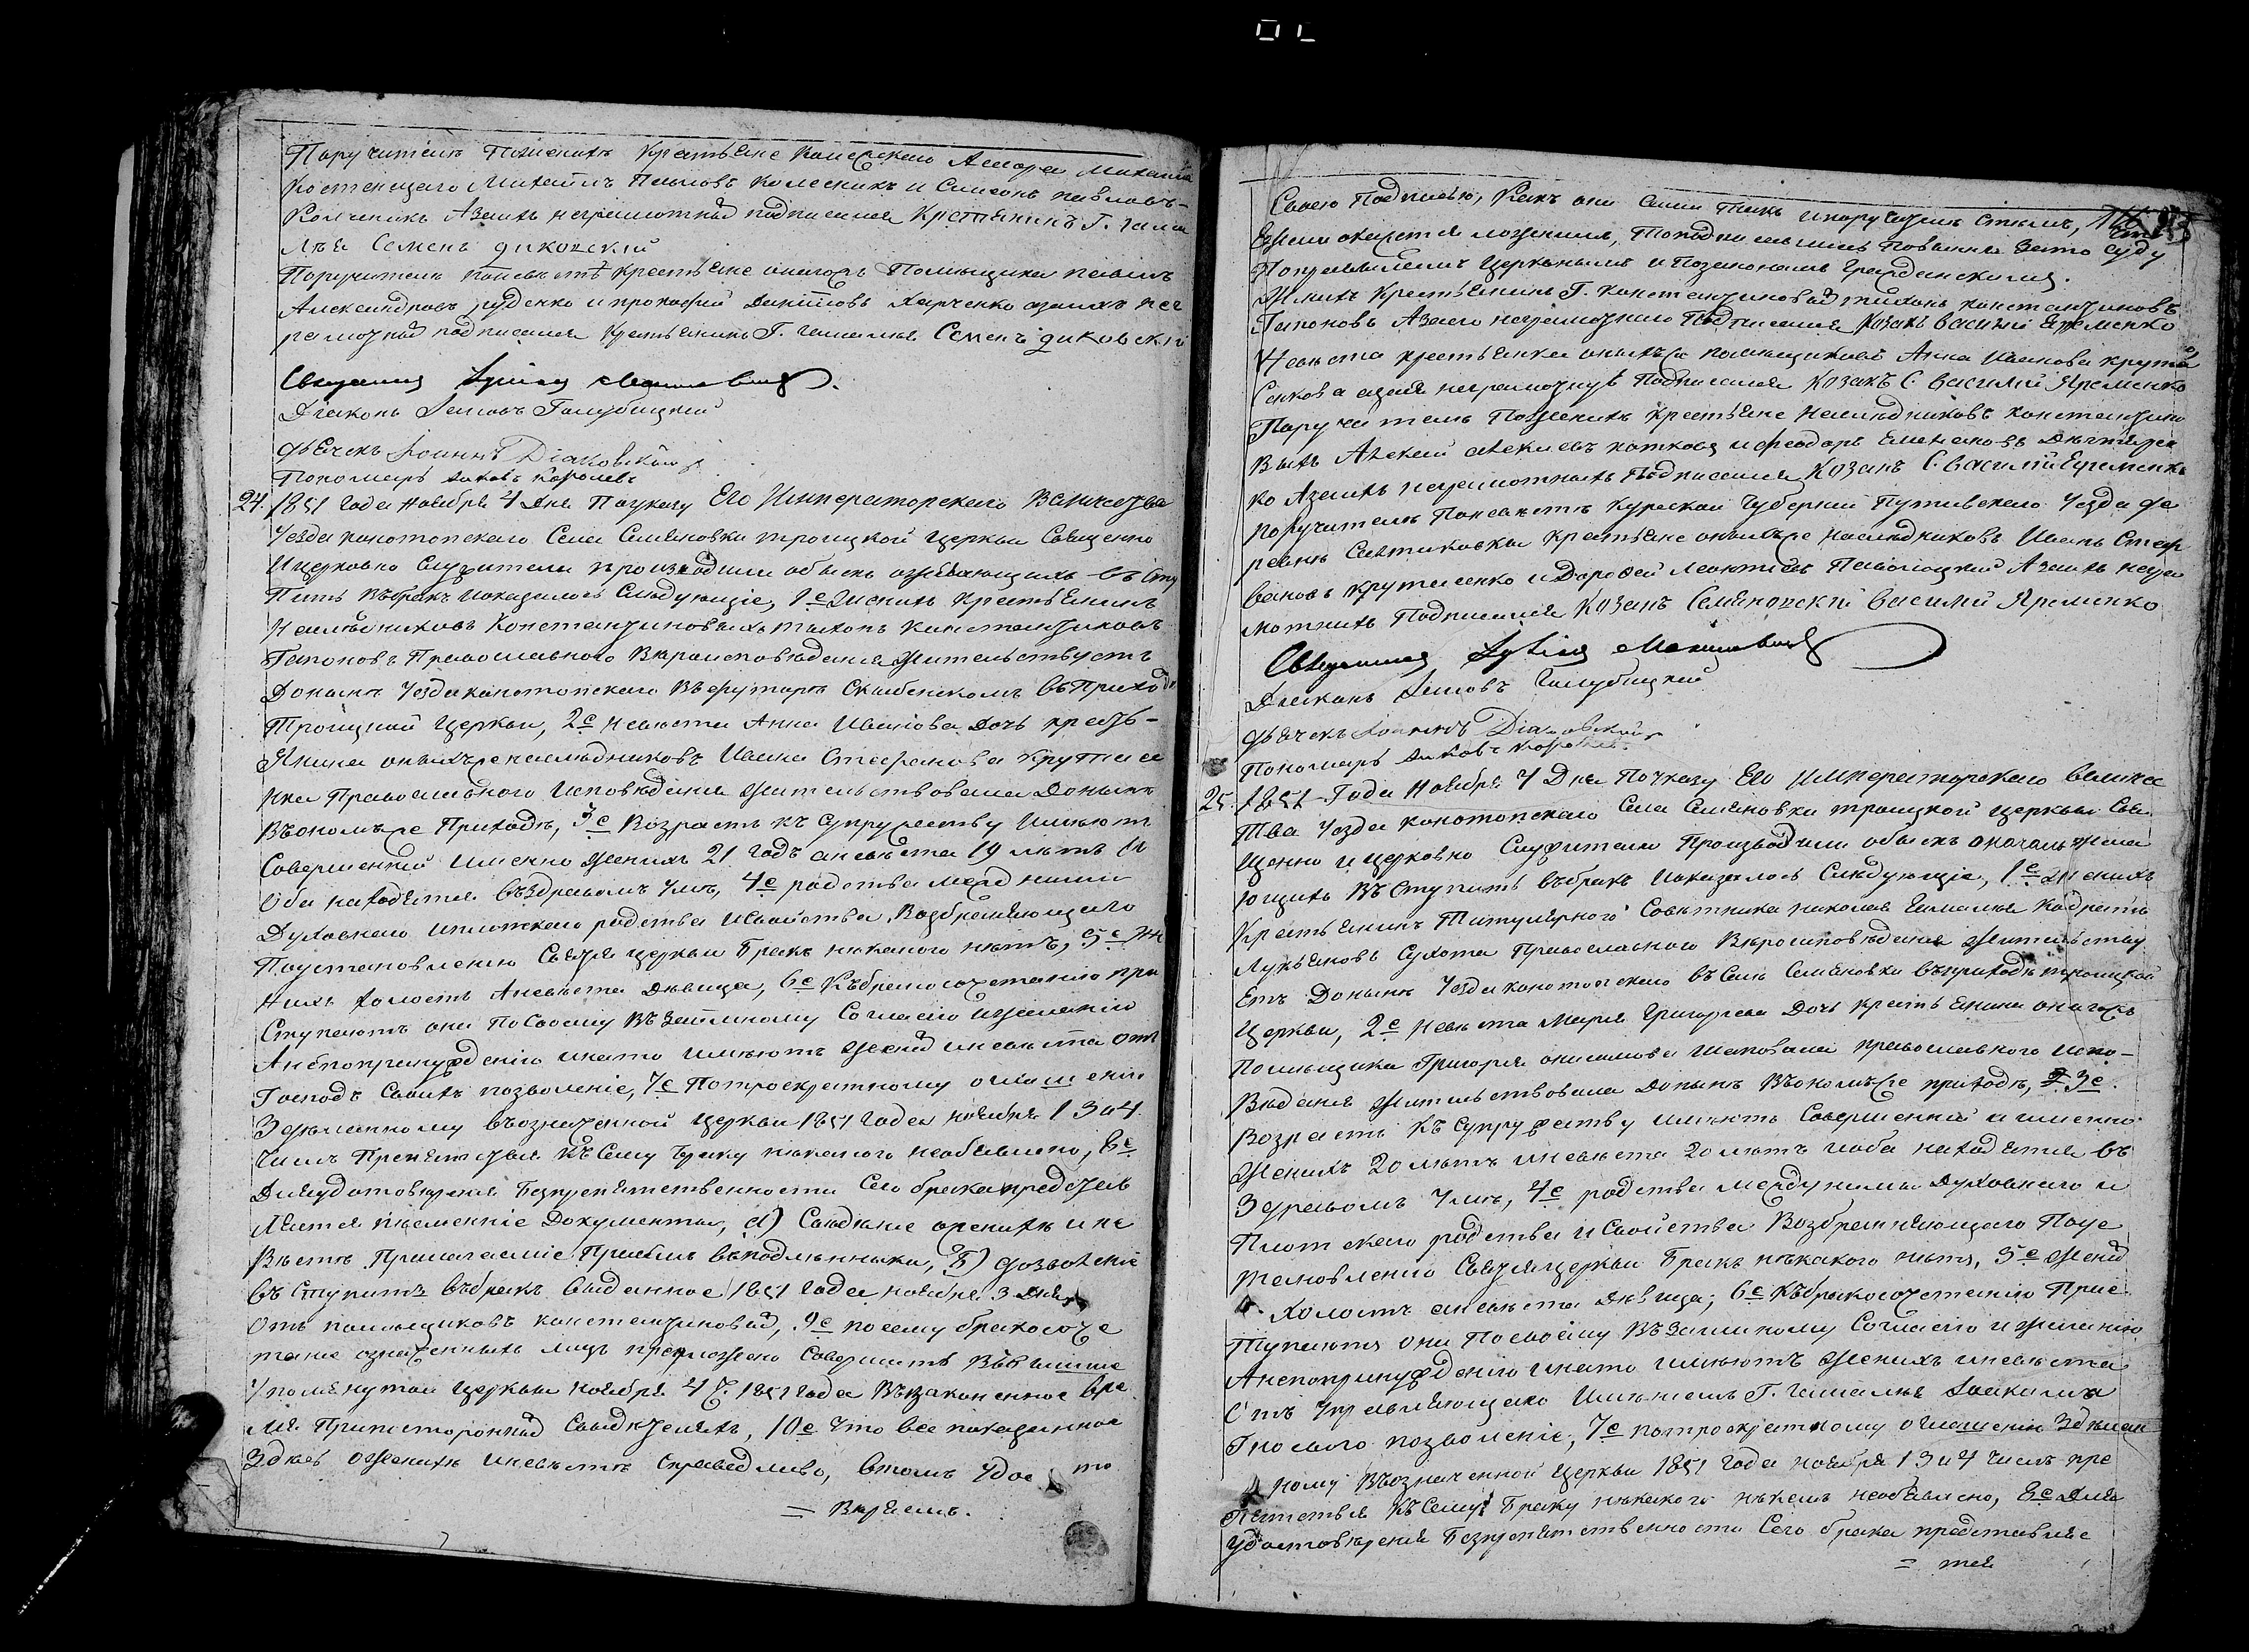 Поручители Пожениху Крестьяне Колежского Асесора Михаила
Костенецкаго Михаилъ Павловъ Колесникъ и Симеонъ павловъ
Колесникъ Азаихъ неграмотных подписался Крестьянинъ Г. Гама
лѣя Семенъ диковский
Поручители поневѣстѣ крестьяне оногожъ Помѣщика павелъ
Александровъ руденко и прокофий Даниловъ Харченко азаихъ нег
рамотных подписался крестьянинъ Г. Гамалѣя Семенъ диковский
Священник
Диаконъ Иаковъ Голубицкий
дьячекъ Іоаннъ Діаковский
Пономарь Иаковъ Королевъ
24. 1851 года Ноября 4 Дня Поуказу Его Императорского Величества
Уезда конотопскаго Села Семяновки троицкой церкви Священно
И церковно Служители производили обыскъ ожелающихъ въсту
Пить Въбракъ Иоказалось Слѣдующіе, 1е Женихъ Крестьянинъ
Наслѣдниковъ Константиновыхъ тихонъ Константиновъ
Гапоновъ Православного Вѣроисповѣдания Жительствуетъ
Донынѣ Уезда конотопскаго Въ хуторѣ Скибенскомъ въПриходѣ
Троицкой Церкви, 2е Невѣста Анна Иванова Дочь кресть-
Янина онихъже наслѣдниковъ Ивана Стефанова Крутисе
нка Православнаго Исповѣдания Жительствовала Донынѣ
Въономъже Приходѣ, 3е Возрастъ къ Супружеству Имѣютъ
Совершенний Именно Женихъ 21 годъ аневѣста 19 лѣтъ И
Оба находятся въздравомъ Умѣ, 4е родства межд ними
Духовнаго Иплотскаго родства Исвойства Возбраняющаго
Поустановлению Святыя церкви Бракъ никакого нѣтъ, 5е Же
нихъ Холостъ Аневѣста Дѣвица, 6е Къбракосочетанию при
Ступаютъ они Посвоему Възаимному Согласию Ижеланию
Анепопринуждению инато имѣютъ Жених иневѣста отъ
Господъ Своихъ позволение, 7е Потроекратному оглашению
Здѣланному въозначенной церкви 1851 года ноября 1 3 и 4
Числъ Препятствия Къ Сему браку никакого необъявлено, 8е
Дляудостовѣрения Безпрепятственности Сего брака представ
ляются писменние Документы, а) Свѣдение ожених ине
вѣстѣ Прилагаеміе Присемъ въподлиннике, б) дозволение
въСтупить въбракъ выданное 1851 года ноября 3 Дня
Отъ помѣщиковъ константиновых, 9е посему бракосоче
тание означенныхъ лицъ предположено Совершить Въвыше
Упомянутой Церкви Ноября 4 Ч. 1851 года Въузаконенное Вре
мя Припосторонних Свидѣтеляхъ, 10е Что все показанное
Здѣсь Оженихѣ Иневѣстѣ Справедливо, Втомъ Удос то
= Вѣряемъ.
Своею Подписью, Какъ они Сами такъ ипоручители Стемъ, что
Ежели окажется ложнимъ, Топодписавшиеся Повинни Зато Суду
Поправиламъ Церковнимъ и Позаконамъ Гражданскимъ.
Женихъ Крестьянинъ Г. Константиновых тихонъ константиновъ
Гапоновъ Азаего неграмотнаго Подписался Козакъ Василий Яременко
Невѣста крестьянка онихъже помѣщиковъ Анна Иванова крути
Сенкова азаея неграмотную Подписался Козакъ С. Василий Яременко
Поручители Пожениху крестьяне Наслѣдниковъ константино
выхъ Алексий ... и феодоръ ... Дегтяре
ко Азаихъ неграмотныхъ Подписался Козакъ С. Василий Еременко
поручители Поневѣстѣ Курской Губернии Путивского Уезда де
ревни Святиковки крестьяне онихъже наслѣдниковъ Иванъ Стеф
вановъ крутисенко и Дорофей Леонтиевъ Паволоцкий Азаихъ негра
мотныхъ Подписался Козакъ Семяновский Василий Яременко
Священник
Диаконъ Иаковъ Голубицкий
дьячекъ Іоаннъ Діаковский
Пономарь Иаковъ Королевъ
25. 1851 Года Ноября 4 Дня Поуказу Его Императорского Величес
Тва Уезда конотопскаго Села Семяновки троицкой церкви Свя
щенно и церковно Служители Производили обыскъ ожела
ющихъ ВъСтупить въбракъ Иоказалось Слѣдующіе, 1е Женихъ
Крестьянинъ Титулярного Совѣтника николая Гамалѣя Кодратъ
Лукьяновъ Сухота Православного Вѣроисповѣдания Жительству
Етъ Донынѣ Уезда конотопскаго въ Селѣ Семяновки въприходѣ троицкой
Церкви, 2е Невѣста Марья Григорьева Дочь крестьянина оногожъ
Помѣщика Григория онисимова Шаповала православного Испо-
Вѣдания Жительствовала Донынѣ Въономъже приходѣ, 3е.
Возрастъ Къ Супружеству имѣютъ Совершенний аименно
Женихъ 20 лѣтъ иневѣста 20 лѣтъ иоба находятся въ
Здравомъ Умѣ, 4е родства Междуними Духовнаго и
Плотскаго родства и Свойства Возбраняющаго Поус
тановлению Святыяцеркви Бракъ никакого нѣтъ, 5е Жених
Холостъ аневѣста Дѣвица; 6е Къбракосочетанию Прис
Тупаютъ они Посвоему Възаимному Согласию и желанию
Анепопринуждению инато имѣютъ Женихъ иневѣста
Отъ Управляющаго Имѣниемъ Г. Гамалѣя Иоакима
Гносваго позволение, 7е потроекратному оглашению Здѣлан
ному Въозначенной церкви 1851 года ноября 1 3 и 4 Числъ пре
пятствия КъСему Браку никакого никемъ необъявлено, 8е Для
Удостовѣрения Безпрепятственности Сего брака представляе
= тся